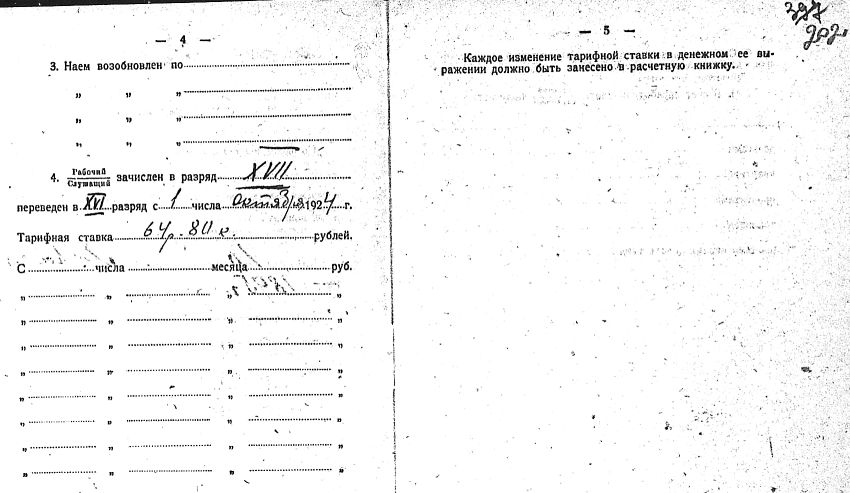 — 4 —
3. Наем возобновлен по
„ „ „
„ „ „
„ „ „
4. Рабочий
Служащий зачислен в разряд XVII
переведен в XVI разряд с 1 числа октября 1924 г.
Тарифная ставка 64 р. 80 к. рублей.
С числа месяца руб.
„ „ „ „
„ „ „ „
„ „ „ „
„ „ „ „
„ „ „ „
„ „ „ „
„ „ „ „
„ „ „ „
— 5 —
397
Каждое изменение тарифной ставки в денежном ее вы-
ражении должно быть занесено в расчетную книжку.